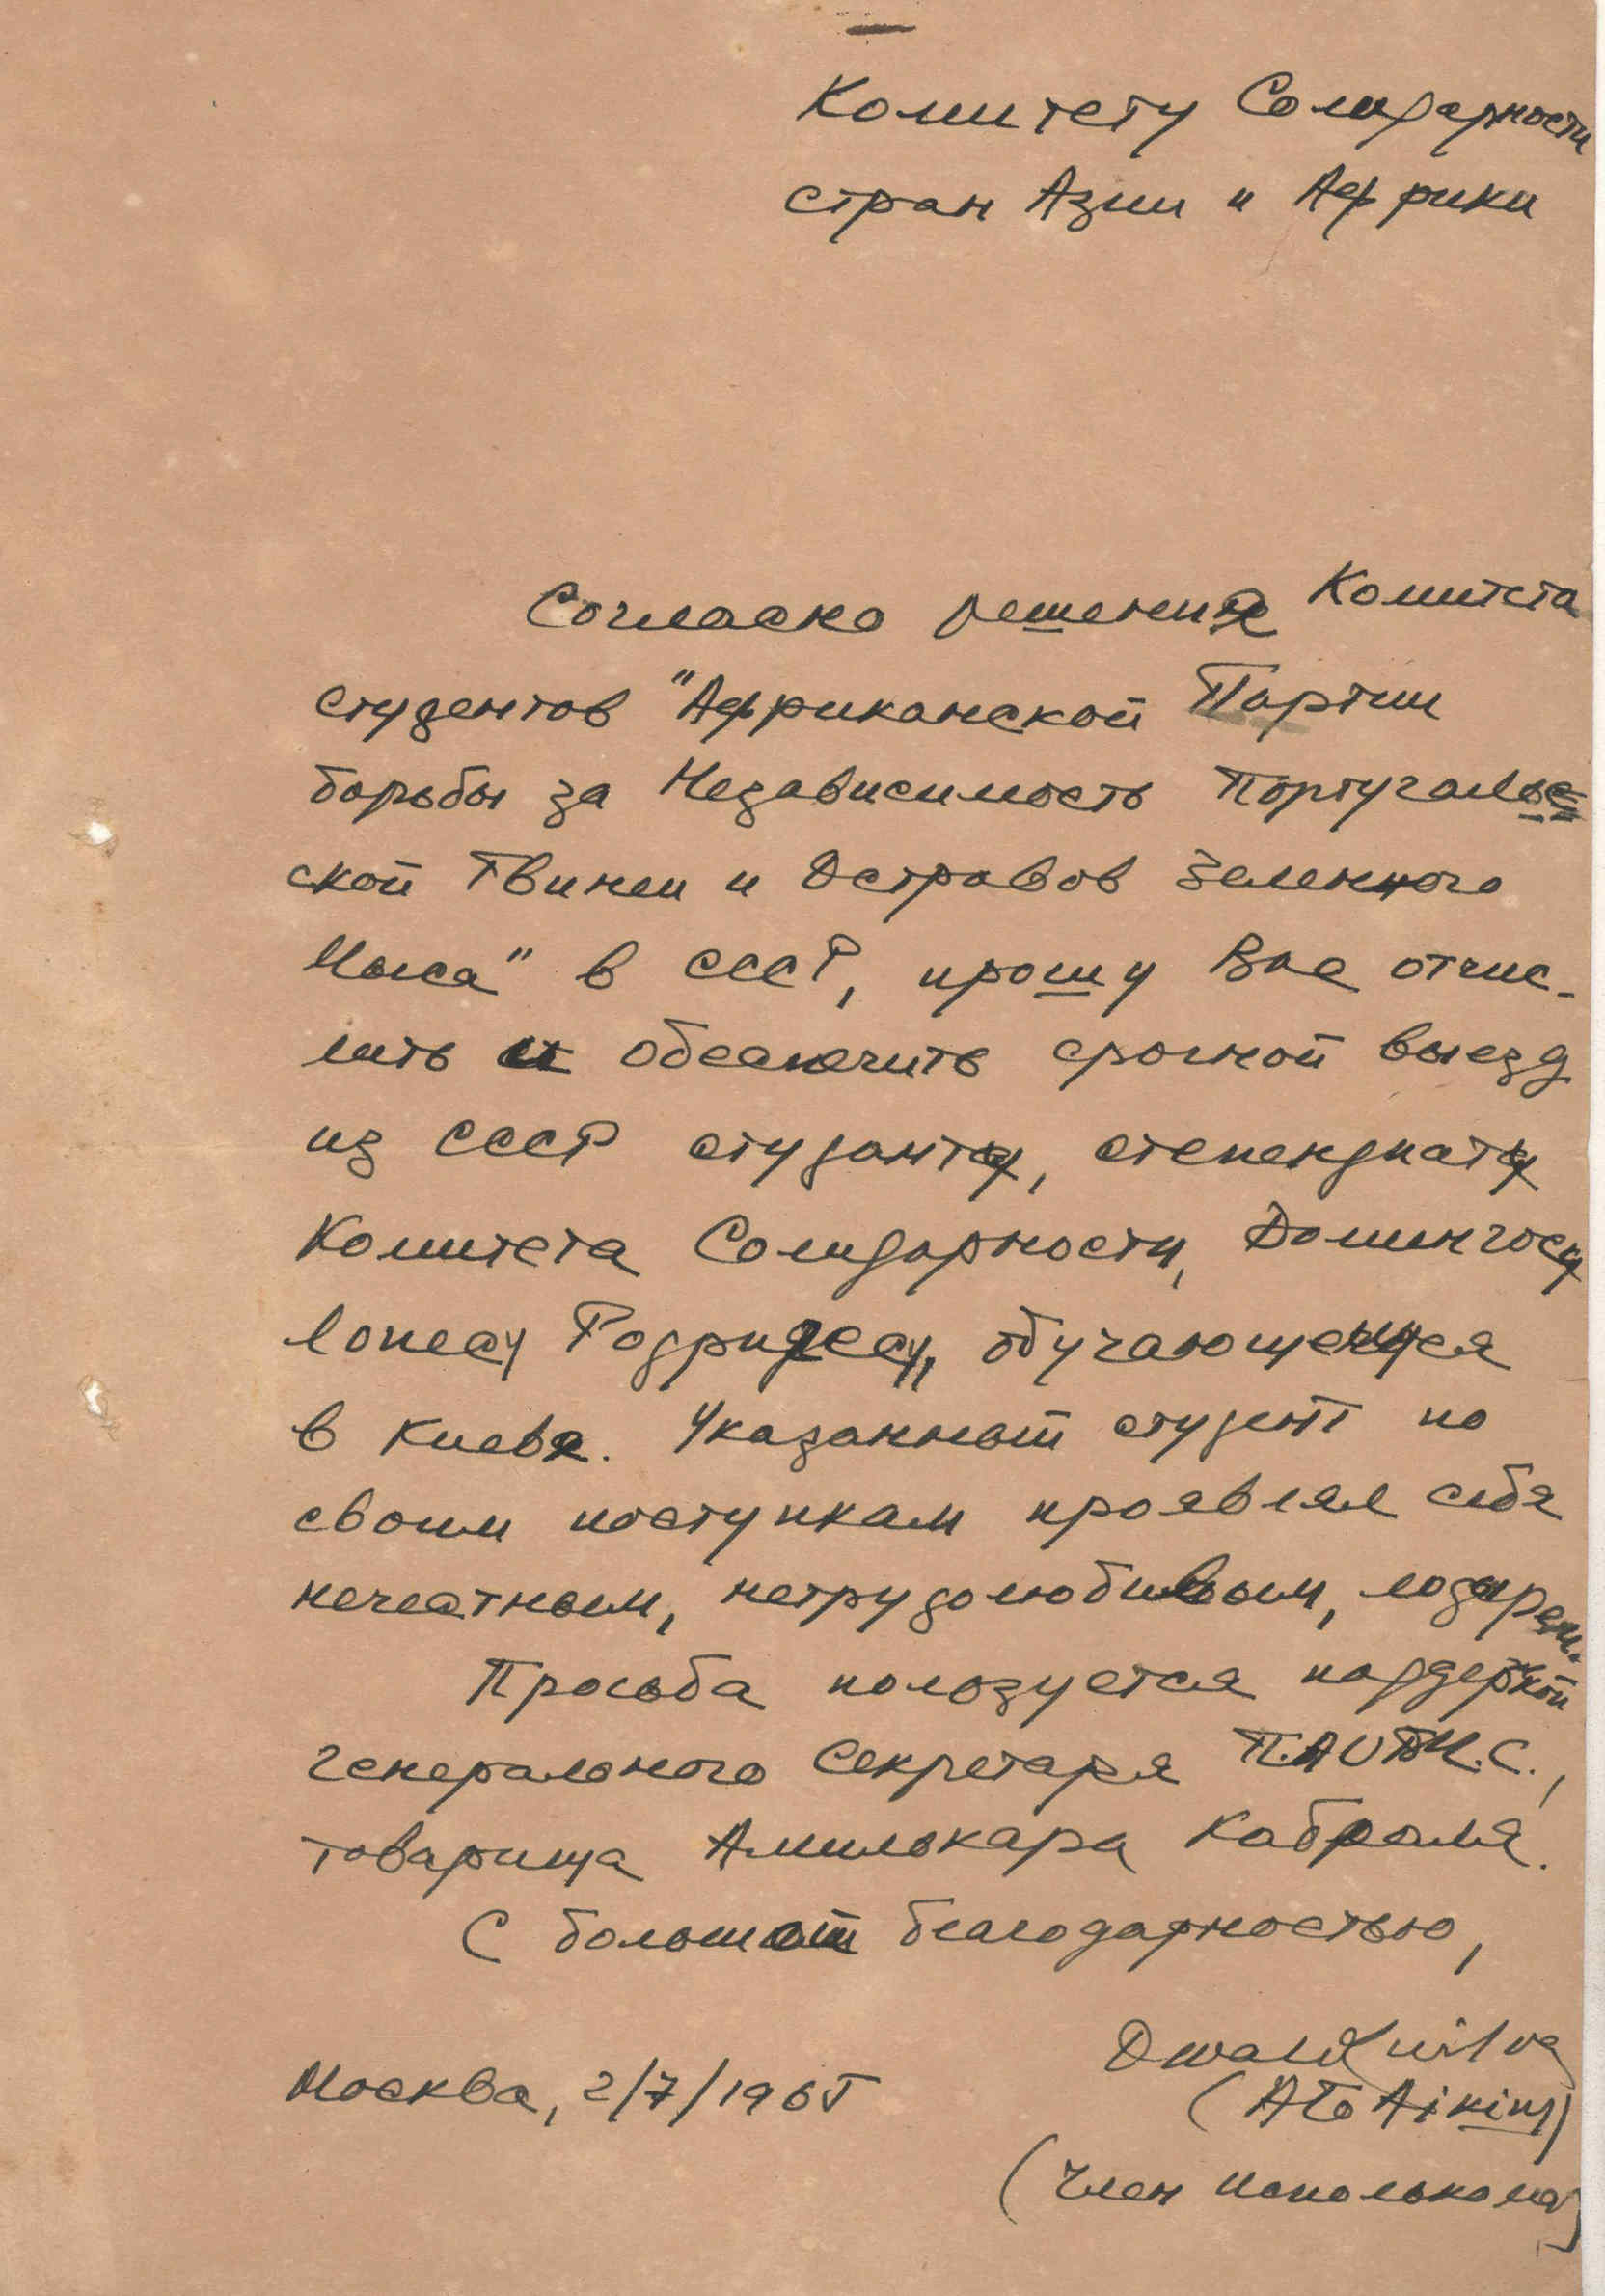 Комитету Солидарности
стран Азии и Африки
Согласно решения Комитета
студентов "Африканской Партии
борьбы за Независимость Португальс
ской Гвинеи и Островов Зеленного
Мыса" в СССР, прошу Вас отчис-
лить и обеспечить срочной выезд
из СССР студенту, степендиату
Комитета Солидарности, Домингосу
Лопесу Родригесу, обучающемуся
в Киеве. Указанный студент по
своим поступкам проявлял себя
нечестным, нетрудолюбивым,
Просьба ползуется поддержкой
генерального Секретаря
товарища Амилькара Кабраля.
С большой благодарностью,
Москва, 2/7/1965
(Член Исполькома)